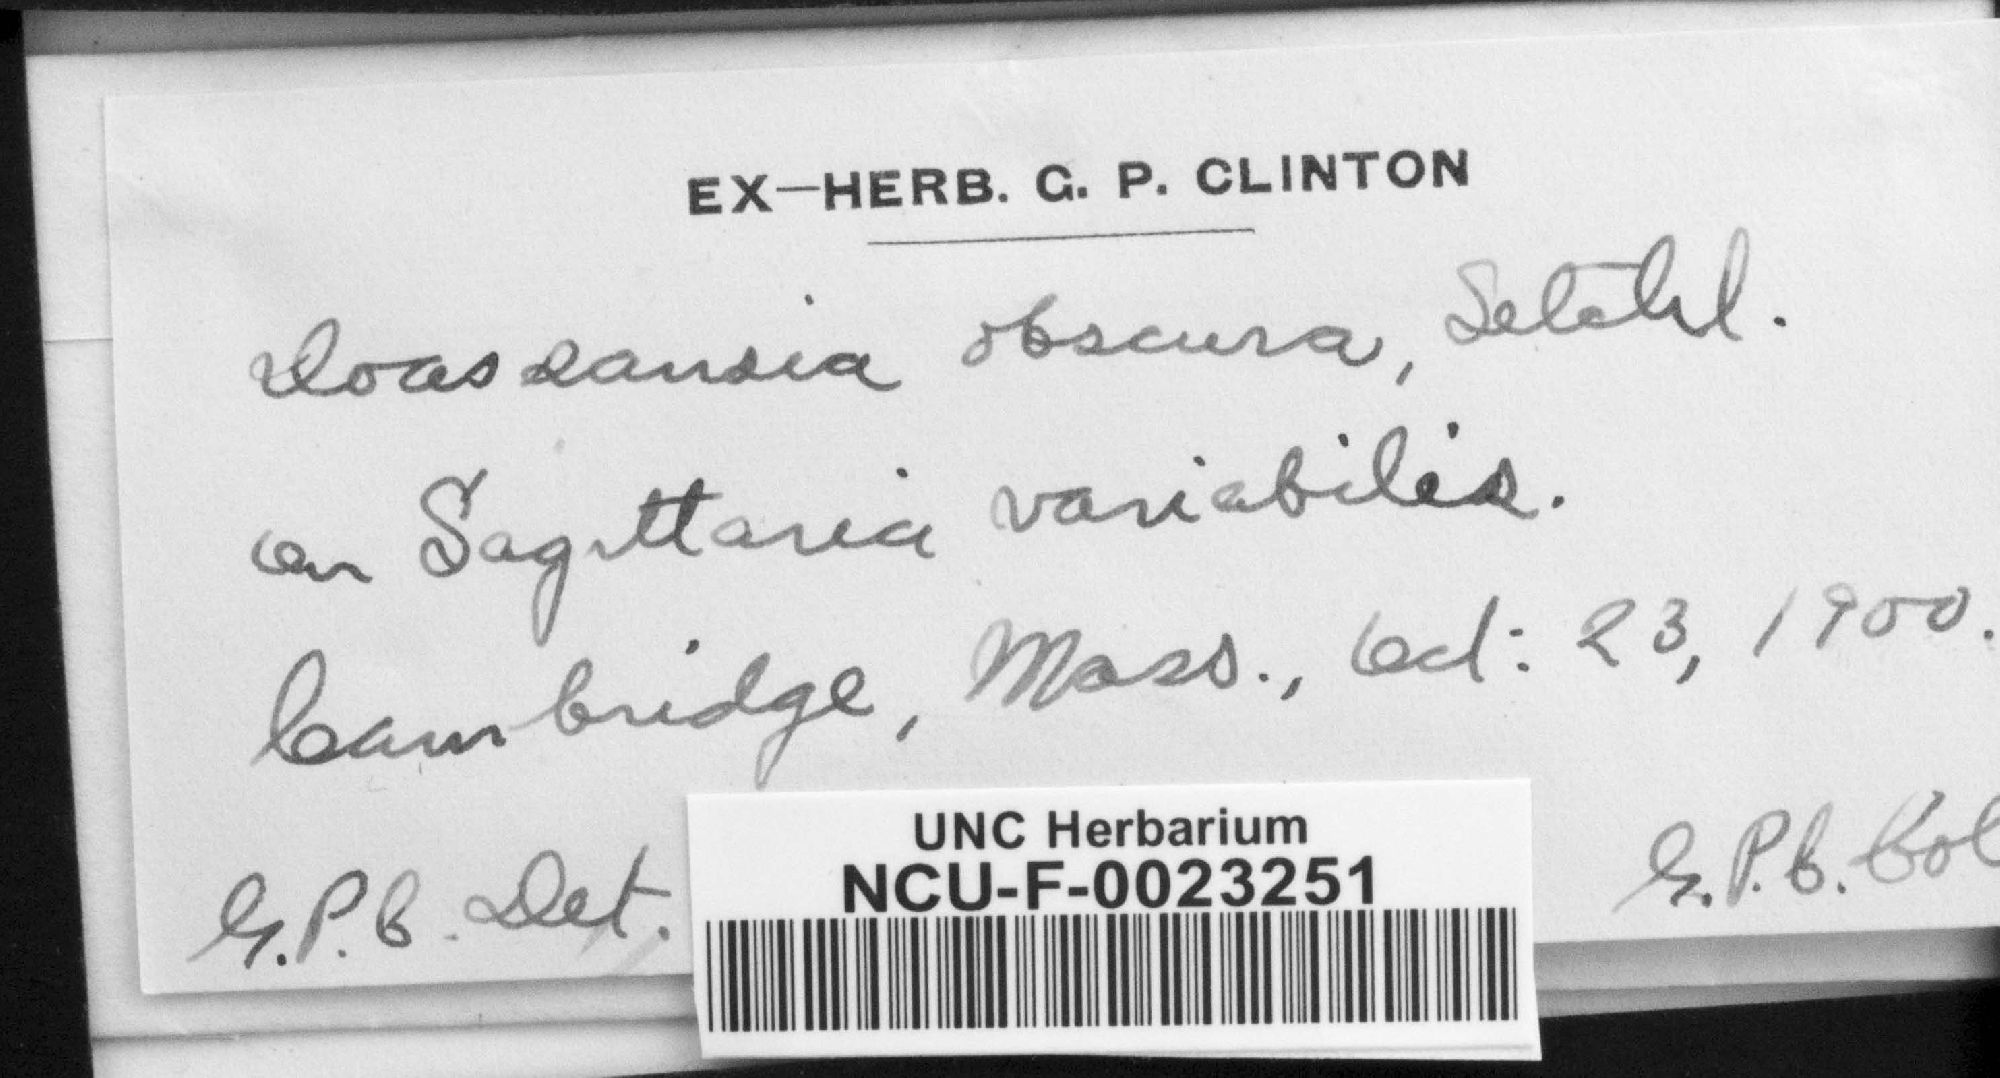 EX—HERB. G. P. CLINTON
Doassansia obscura, Setchl.
on Sagittaria variabilis.
Cambridge, Mass., Oct: 23, 1900.
G.P.C. Det.
G.P.C. Col
UNC Herbarium
NCU-F-0023251